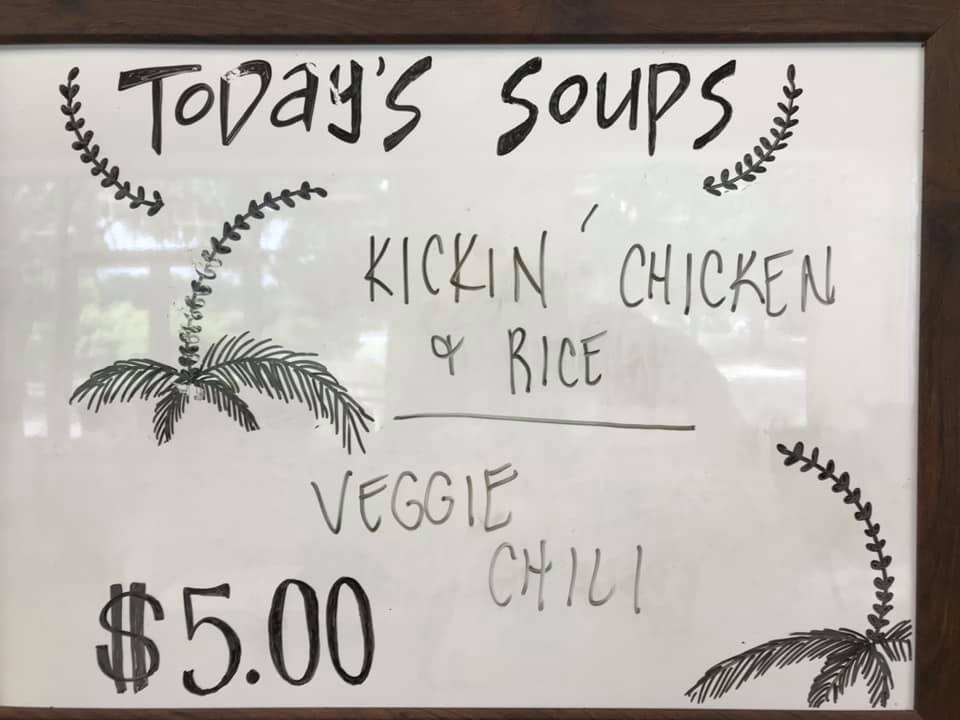 TODay's Soups
KICKIN' CHICKEN
& RICE
VEGGIE
CHILI
$5.00